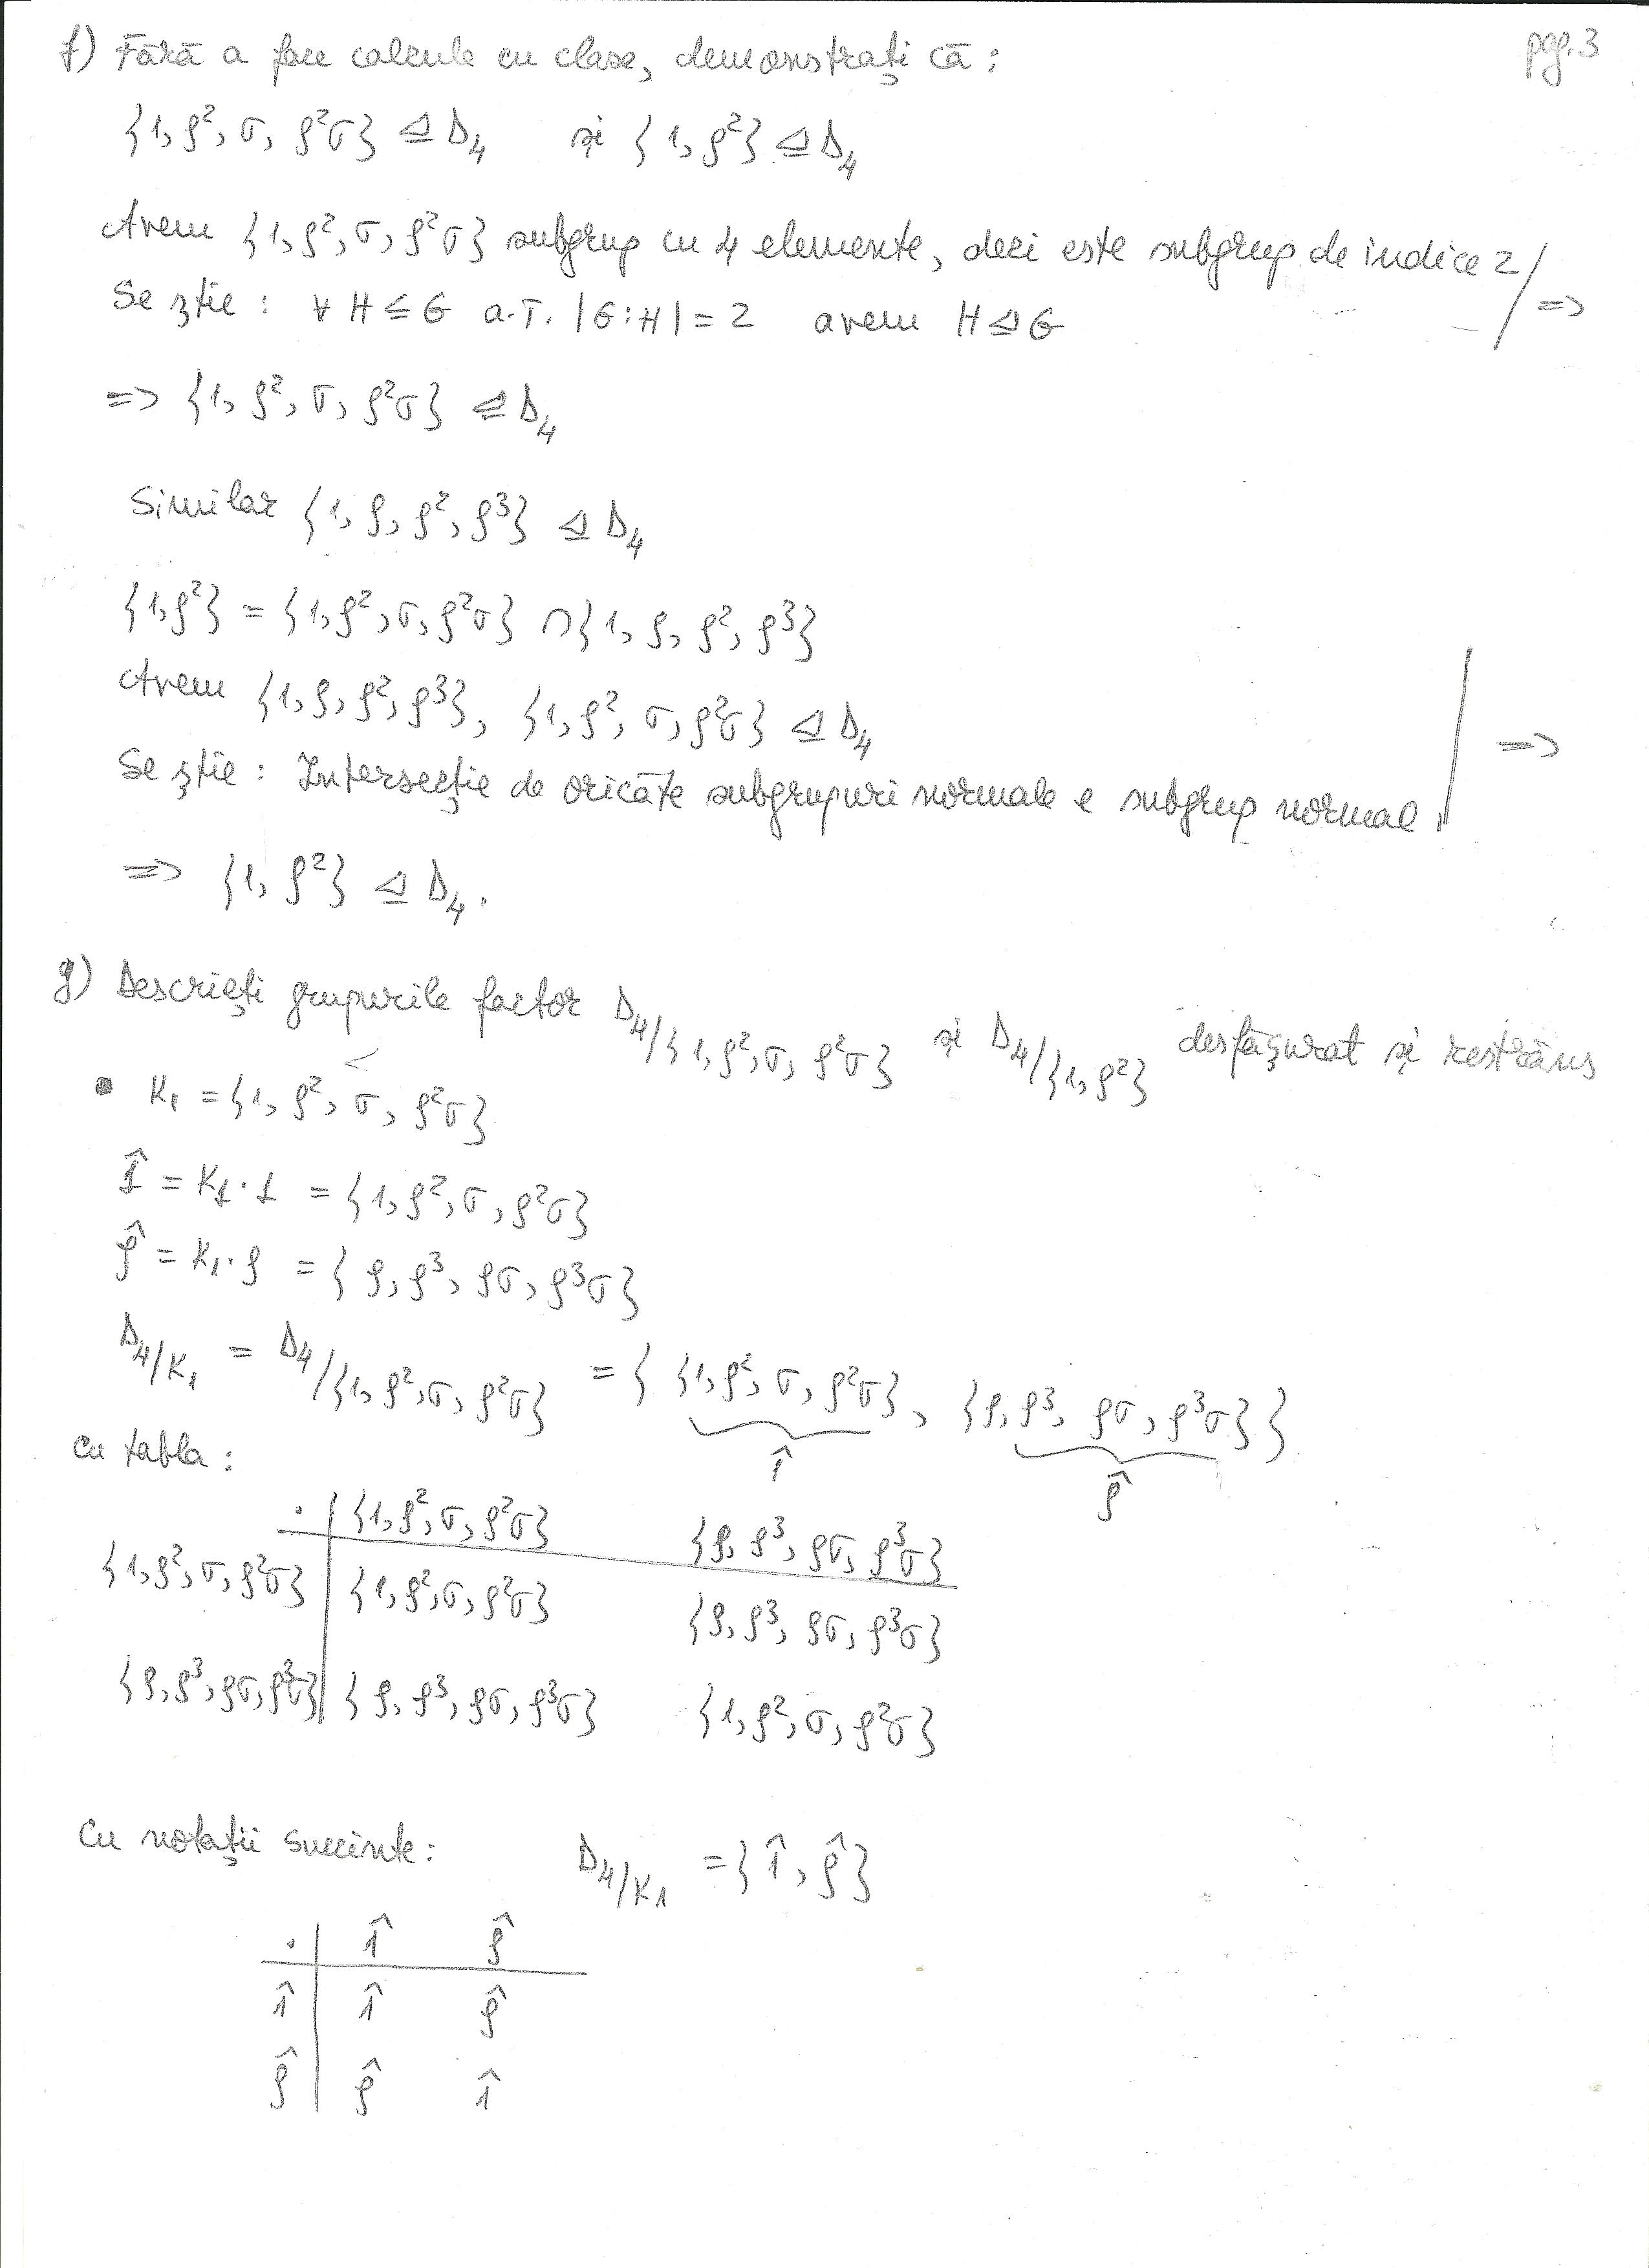 pg. 3
f) Fără a face calcule cu clase, demonstrați că:
{1, ρ², σ, ρ²σ} ⊴ D₄ și {1, ρ²} ⊴ D₄
Avem {1, ρ², σ, ρ²σ} subgrup cu 4 elemente, deci este subgrup de indice 2 /
Se știe: ∀ H ≤ G a.î. |G:H| = 2 avem H ⊴ G / =>
=> {1, ρ², σ, ρ²σ} ⊴ D₄
Similar {1, ρ, ρ², ρ³} ⊴ D₄
{1, ρ²} = {1, ρ², σ, ρ²σ} ∩ {1, ρ, ρ², ρ³}
Avem {1, ρ, ρ², ρ³}, {1, ρ², σ, ρ²σ} ⊴ D₄ | =>
Se știe: Intersecție de oricâte subgrupuri normale e subgrup normal.
=> {1, ρ²} ⊴ D₄.
g) Descrieți grupurile factor D₄/{1, ρ², σ, ρ²σ} și D₄/{1, ρ²} desfășurat și restrâns
• K₁ = {1, ρ², σ, ρ²σ}
1̂ = K₁·1 = {1, ρ², σ, ρ²σ}
ρ̂ = K₁·ρ = {ρ, ρ³, ρσ, ρ³σ}
D₄/K₁ = D₄/{1, ρ², σ, ρ²σ} = { {1, ρ², σ, ρ²σ}, {ρ, ρ³, ρσ, ρ³σ} }
1̂ ρ̂
Cu tabla:
· | {1, ρ², σ, ρ²σ} {ρ, ρ³, ρσ, ρ³σ}
{1, ρ², σ, ρ²σ} | {1, ρ², σ, ρ²σ} {ρ, ρ³, ρσ, ρ³σ}
{ρ, ρ³, ρσ, ρ³σ} | {ρ, ρ³, ρσ, ρ³σ} {1, ρ², σ, ρ²σ}
Cu notații succinte: D₄/K₁ = {1̂, ρ̂}
· | 1̂ ρ̂
1̂ | 1̂ ρ̂
ρ̂ | ρ̂ 1̂